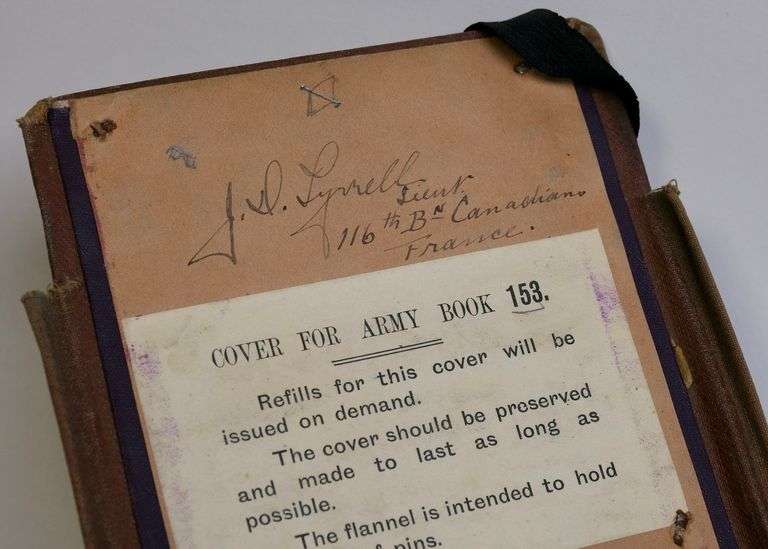 J. D. Tyrrell
Lieut.
116th Bn Canadians
France.
COVER FOR ARMY BOOK 153.
Refills for this cover will be
issued on demand.
The cover should be preserved
and made to last as long as
possible.
The flannel is intended to hold
of pins.